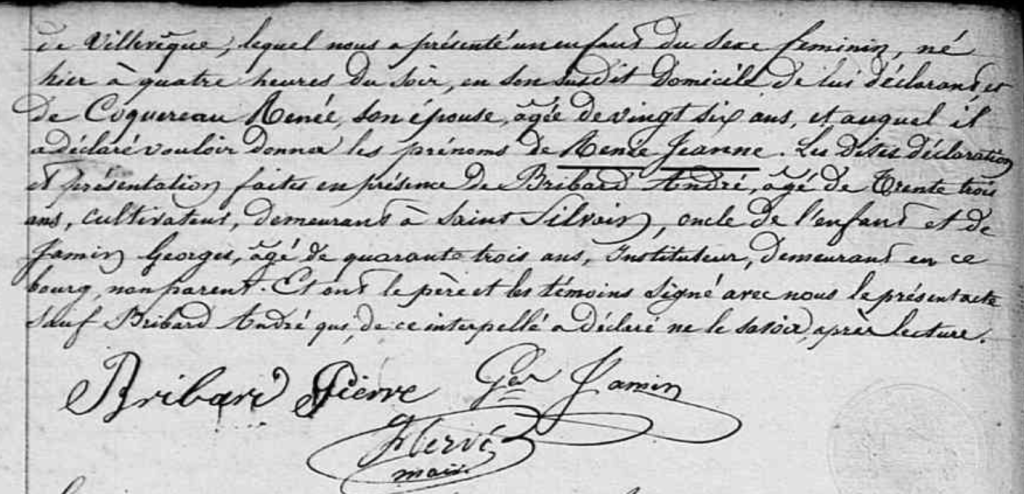 de Villevêque, lequel nous a présenté un enfant du sexe féminin, né
hier à quatre heures du soir, en son susdit domicile de lui déclarant et
de Coquereau Renée, son épouse, âgée de vingt six ans, et auquel il
a déclaré vouloir donner les prénoms de Renée Jeanne. Les dites déclaration
et présentation faites en présence de Bribard André, âgé de trente trois
ans, cultivateur, demeurant à Saint Silvain, oncle de l'enfant et de
Jamin Georges, âgé de quarante trois ans, Instituteur, demeurant en ce
bourg, non parent. Et ont le père et les témoins signé avec nous le présent acte
sauf Bribard André qui, de ce interpellé a déclaré ne le savoir, après lecture.
Bribard Pierre Ges Jamin
Hervé
maire